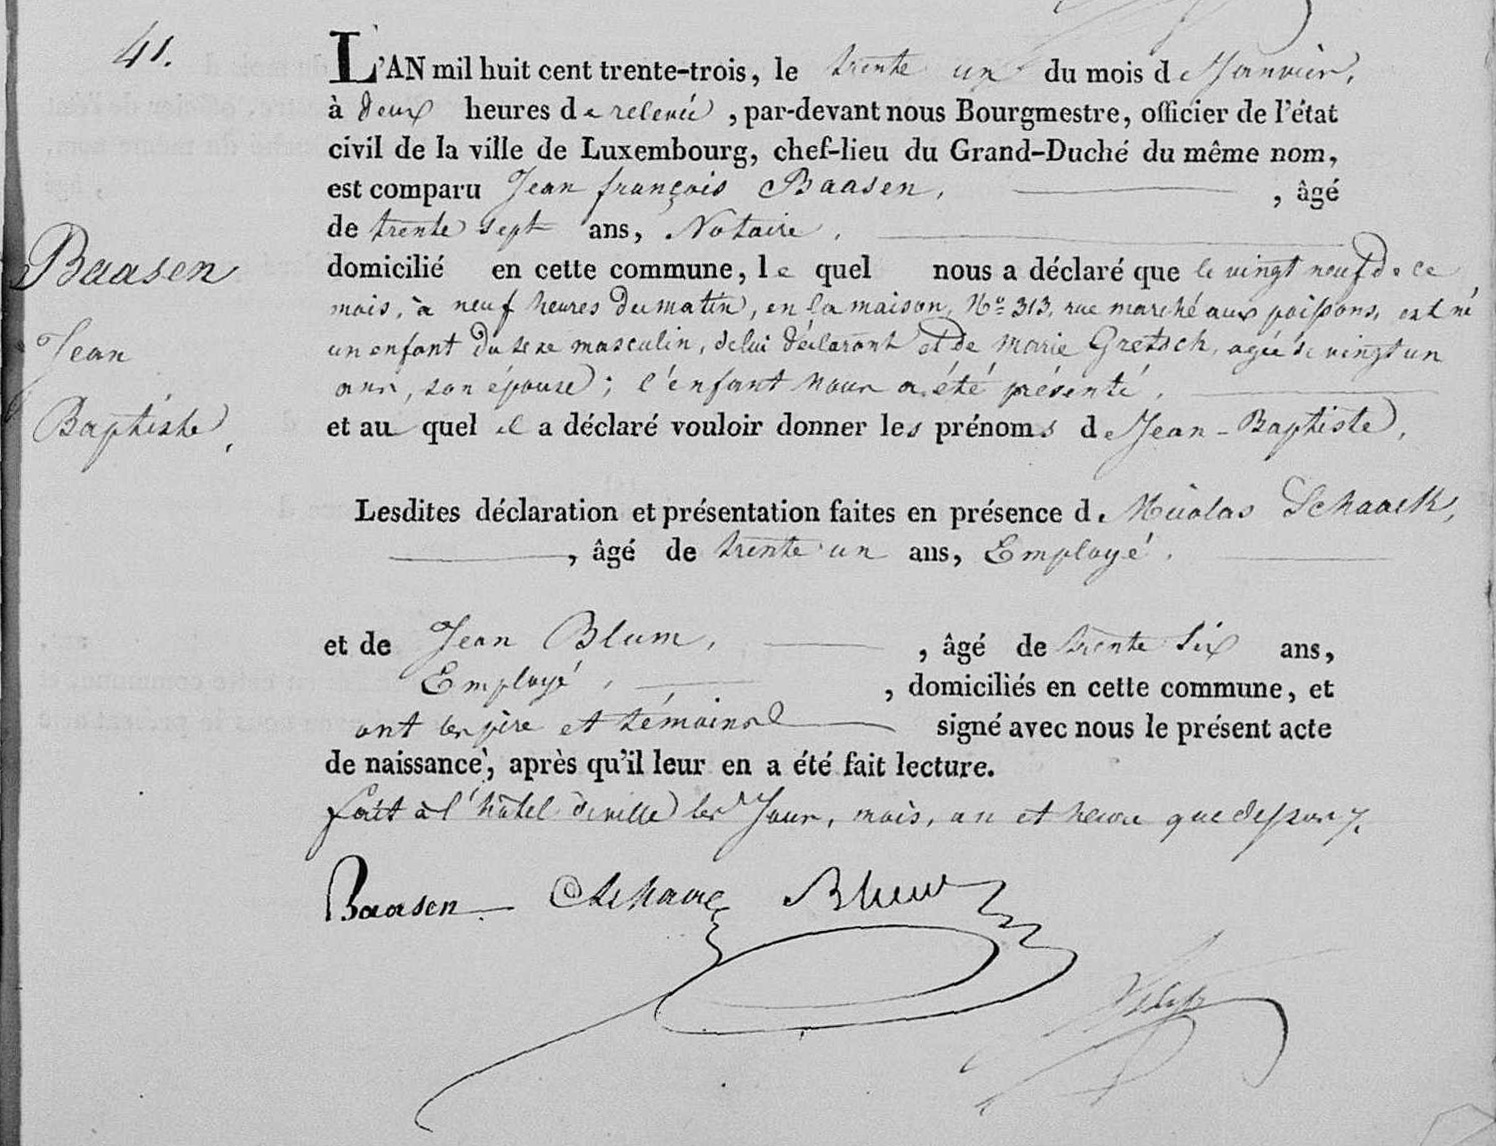 41.
L'AN mil huit cent trente-trois, le trente un du mois de Janvier,
à deux heures de relevée, par-devant nous Bourgmestre, officier de l'état
civil de la ville de Luxembourg, chef-lieu du Grand-Duché du même nom,
est comparu Jean françois Baasen, , âgé
de trente sept ans, Notaire,
domicilié en cette commune, le quel nous a déclaré que le vingt neuf de ce
mois, à neuf heures du matin, en la maison, No 313, rue marché aux poissons, est né
un enfant du sexe masculin, de lui déclarant et de Marie Gretsch, agée de vingt un
ans, son épouse; l'enfant nous a été présenté,
et au quel il a déclaré vouloir donner les prénoms de Jean-Baptiste,
Baasen
Jean
Baptiste,
Lesdites déclaration et présentation faites en présence de Nicolas Schaack,
, âgé de trente un ans, Employé,
et de Jean Blum, , âgé de trente six ans,
Employé, , domiciliés en cette commune, et
ont les père et témoins signé avec nous le présent acte
de naissance, après qu'il leur en a été fait lecture.
fait à l'hôtel de ville les Jour, mois, an et heure que dessus.
Baasen Schaack Blum